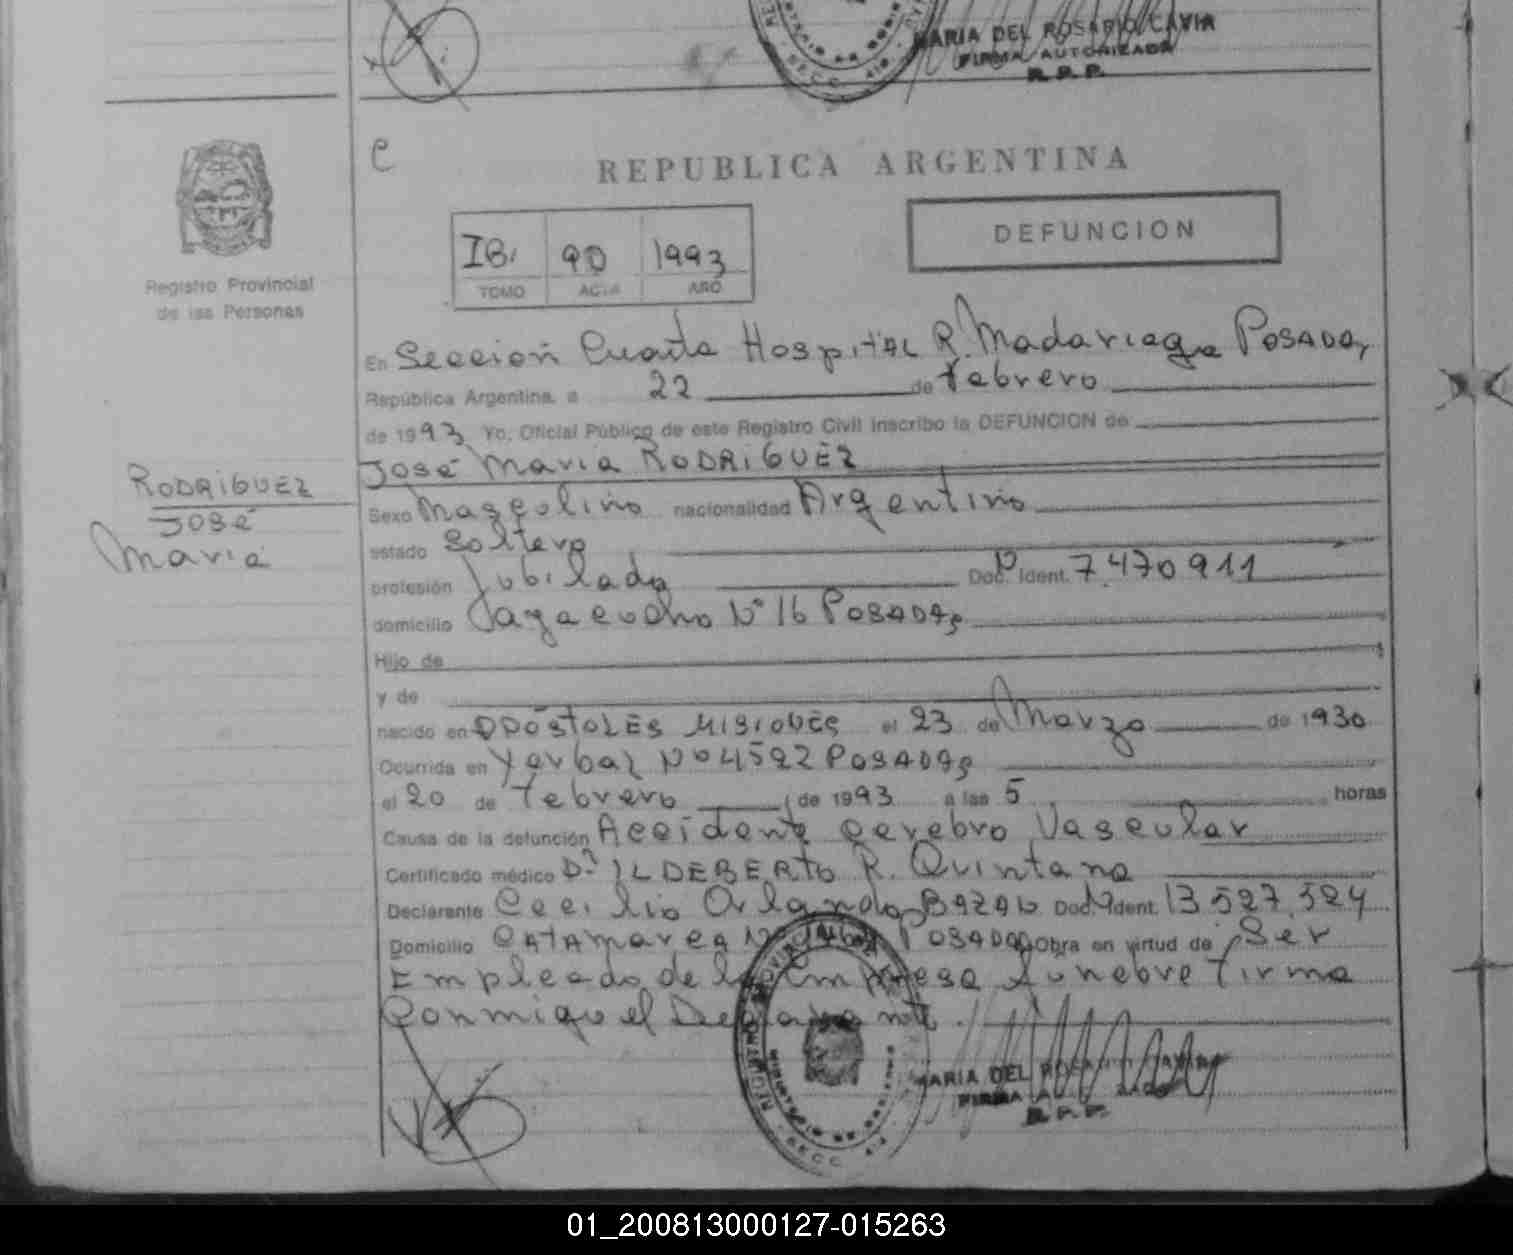 MARIA DEL ROSARIO CAVIA
FIRMA AUTORIZADA
R. P. P.
C
REPUBLICA ARGENTINA
Registro Provincial
de las Personas
IB. 90 1993
TOMO ACTA AÑO
DEFUNCION
En Sección Cuarta Hospital R. Madariaga POSADAS,
República Argentina, a 22 de Febrero
de 1993 Yo, Oficial Público de este Registro Civil inscribo la DEFUNCION de
José Maria RODRiGUEZ
RODRiGUEZ
JOSÉ
Maria
Sexo Masculino nacionalidad Argentino
estado Soltero
profesión Jubilado Doc. Ident. 7.470911
domicilio N° 16 POSADAS
Hijo de
y de
nacido en APÓSTOLES MISIONES el 23 de Marzo de 1930
Ocurrida en Yerbal N° 4592 POSADAS
el 20 de Febrero de 1993 a las 5 horas
Causa de la defunción Accidente Cerebro Vascular
Certificado médico Dr ILDEBERTO R. Quintana
Declarante Cecilio Orlando BAZAN Doc. Ident. 13.527.524
Domicilio CATAMArca POSADAS Obra en virtud de Ser
Empleado de la Empresa Fúnebre Firma
Conmigo el Declarante.
MARIA DEL ROSARIO CAVIA
FIRMA
R. P. P.
01_200813000127-015263